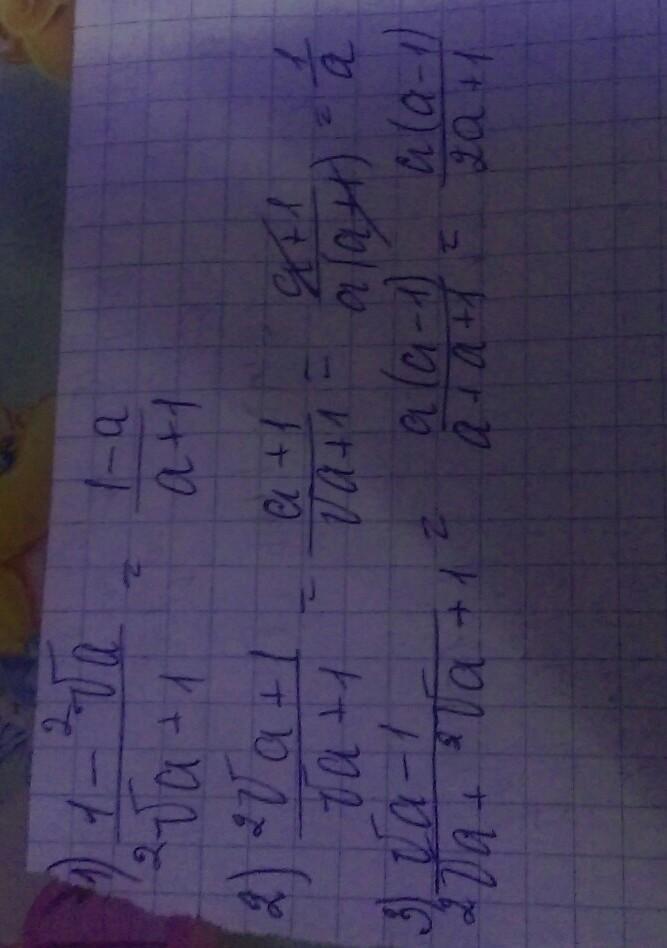 1) (1 - ²√a)/(²√a + 1) = (1 - a)/(a + 1)
2) (²√a + 1)/(√a + 1) = (a + 1)/(√a + 1) = (a + 1)/(a(a + 1)) = 1/a
3) (√a - 1)/(²√a + ²√a + 1) = (a(a - 1))/(a + a + 1) = (a(a - 1))/(2a + 1)